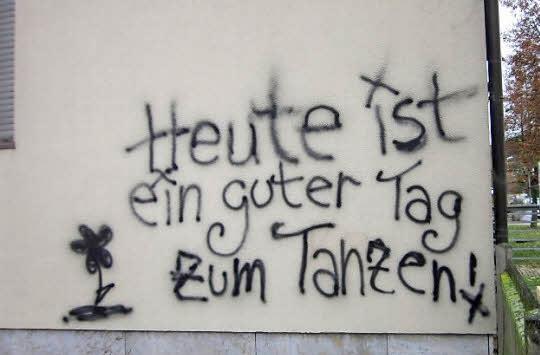 Heute ist
ein guter Tag
zum Tanzen!